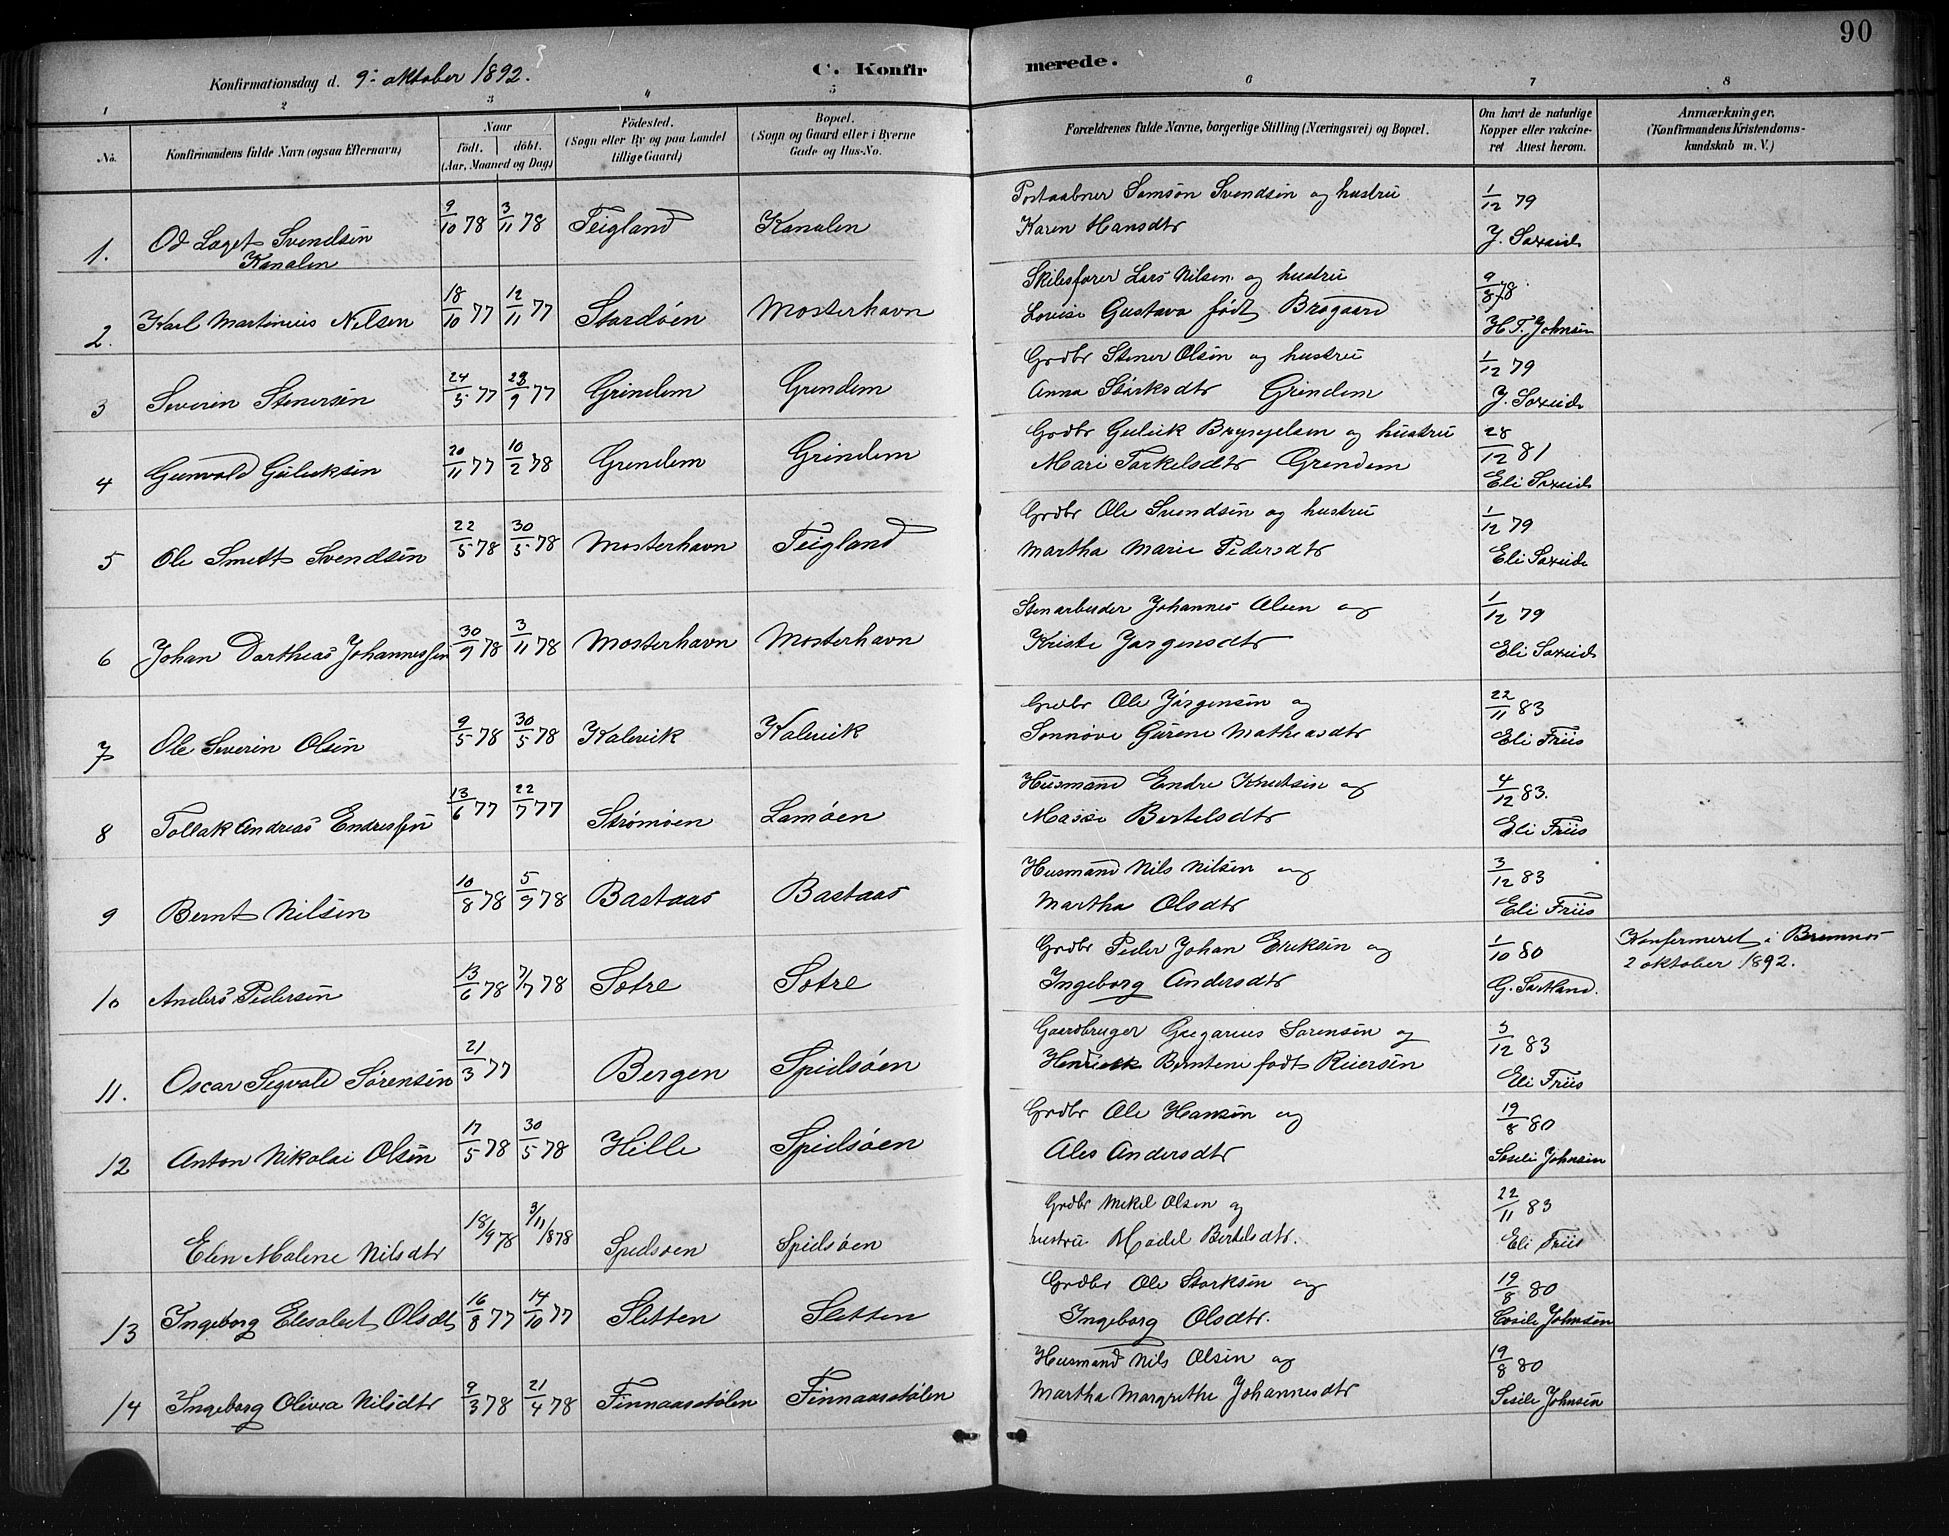 90
Konfirmationsdag d. 9: oktober 1892.
C. Konfir merede.
1 2 3 4 5 6 7 8
No.
Konfirmandens fulde Navn (ogsaa Efternavn)
Naar
födt. döbt.
(Aar, Maaned og Dag)
Födested.
(Sogn eller By og paa Landet
tillige Gaard)
Bopæl.
(Sogn og Gaard eller i Byerne
Gade og Hus-No.
Forældrenes fulde Navne, borgerlige Stilling (Næringsvei) og Bopæl.
Om havt de naturlige
Kopper eller vakcine-
ret Attest herom.
Anmærkninger.
(Konfirmandens Kristendoms-
kundskab m. V.)
1. Od Laget Svendsen 9/10 78 3/11 78 Teigland Kanalen
Kanalen
Postaabner Samson Svendsen og hustru
Karen Hansdtr
1/12 79
J. Saxeid
2. Karl Martinius Nilsen 18/10 77 12/11 77 Stordöen Mosterhavn
Skibsfører Lars Nilsen og hustru
Lovise Gustava født Brogaard
9/3 78
H T. Johnsen
3 Severin Stenersen 24/5 77 23/9 77 Grindem Grendem
Grdbr Stener Olsen og hustru
Anna Størksdtr Grindem
1/12 79
J. Saxeid
4 Gunvald Guleiksen 20/11 77 10/2 78 Grendem Grindem
Grdbr Guleik Brynjelsen og hustru
Mari Torkelsdtr Grendem
28/12 81
Eli Saxeid
5 Ole Smett Svendsen 22/5 78 30/5 78 Mosterhavn Teigland
Grdbr Ole Svendsen og hustru
Martha Marie Pedersdtr
1/12 79
Eli Saxeid
6 Johan Dortheas Johannessen 30/9 78 3/11 78 Mosterhavn Mosterhavn
Stenarbeider Johannes Olsen og
Kristi Jørgensdtr
1/12 79
Eli Saxeid
7 Ole Severin Olsen 9/5 78 30/5 78 Kalevik Kalevik
Grdbr Ole Jörgensen og
Sønnøve Gurene Matheasdtr
22/11 83
Eli Friis
8 Tollak Andreas Endressen 13/6 77 22/7 77 Strømøen Lamøen
Husmand Endre Knutsen og
Massi Bertelsdtr
4/12 83.
Eli Friis
9 Bernt Nilsen 10/8 78 5/9 78 Bastaas Bastaas
Husmand Nils Nilsen og
Martha Olsdtr
3/12 83
Eli Friis
10 Anders Pedersen 13/6 78 7/7 78 Sotre Sotre
Grdbr Peder Johan Eriksen og
Ingeborg Andersdtr
1/10 80
G. Sortland.
Konfermeret i Bremnes
2 oktober 1892.
11. Oscar Segvald Sørensen 21/3 77 Bergen Spidsøen
Gaardbruger Gregarius Sørensen og
Henriette Berntene født Reiersen
3/12 83
Eli Friis
12 Anton Nikolai Olsen 17/5 78 30/5 78 Hille Spidsøen
Grdbr Ole Hansen og
Ales Andersdtr
19/8 80
Sesele Johnsen
Elen Malene Nilsdtr 18/9 78 3/11/878 Spidsøen Spidsøen
Grdbr Mekel Olsen og
hustru Madel Bertelsdtr.
22/11 83
Eli Friis
13 Ingeborg Elesabet Olsdt 16/8 77 14/10 77 Sletten Sletten
Grdbr Ole Størksen og
Ingeborg Olsdtr.
19/8 80
Cesele Johnsen
14 Ingeborg Olivea Nilsdtr 9/3 78 21/4 78 Finnaasstølen Finnaasstølen
Husmand Nils Olsen og
Martha Margrethe Johannesdtr
19/8 80
Sesele Johnsen